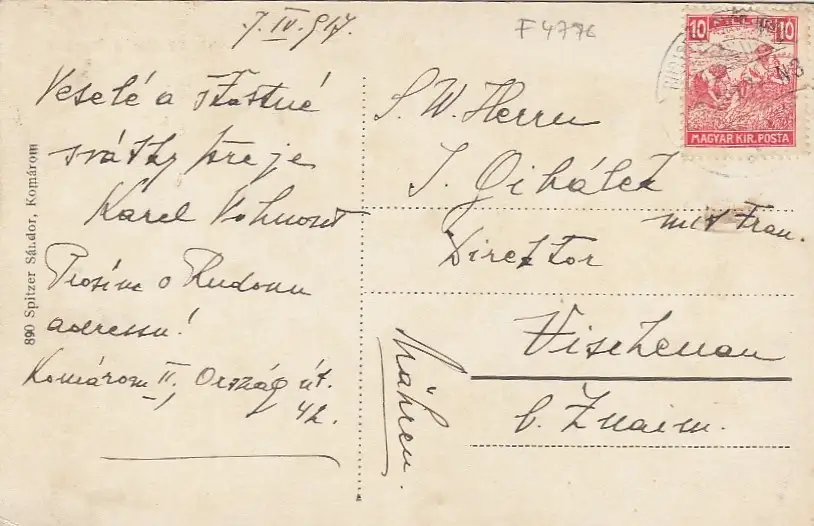 7. IV. 917.
F 4776
Veselé a šťastné
svátky přeje
Karel
Prosím o
adressu!
Komárom II, Ország út.
42.
890 Spitzer Sándor, Komárom
10 10
MAGYAR KIR. POSTA
S. W. Herrn
J.
mit Frau.
Direktor
Vischenau
b. Znaim.
Mähren.